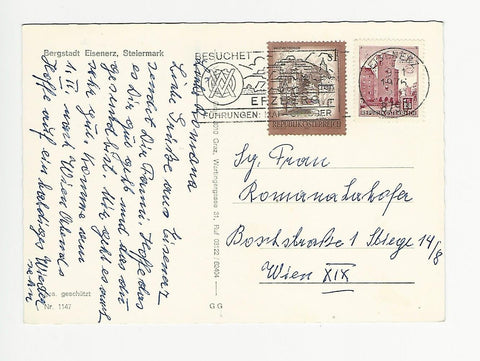 Bergstadt Eisenerz, Steiermark
Liebe Romana
Liebe Grüße aus Eisenerz
sendet Dir Fanni. Hoffe das
es Dir gut geht und das du
gesund bist. Mir geht es auch
sehr gut. Komme am
1. II. nach Wien Abends
Hoffe auf ein baldiges Wieder
sehn
geschützt
Nr. 1147
8010 Graz, Wartingergasse 31, Ruf 03122
GG
BESUCHET
ERZBERG
FÜHRUNGEN: MAI-OKTOBER
S1
REPUBLIK ÖSTERREICH
EISENERZ
Sg. Frau
Romana
Boschstraße 1 Stiege 14/8
Wien XIX